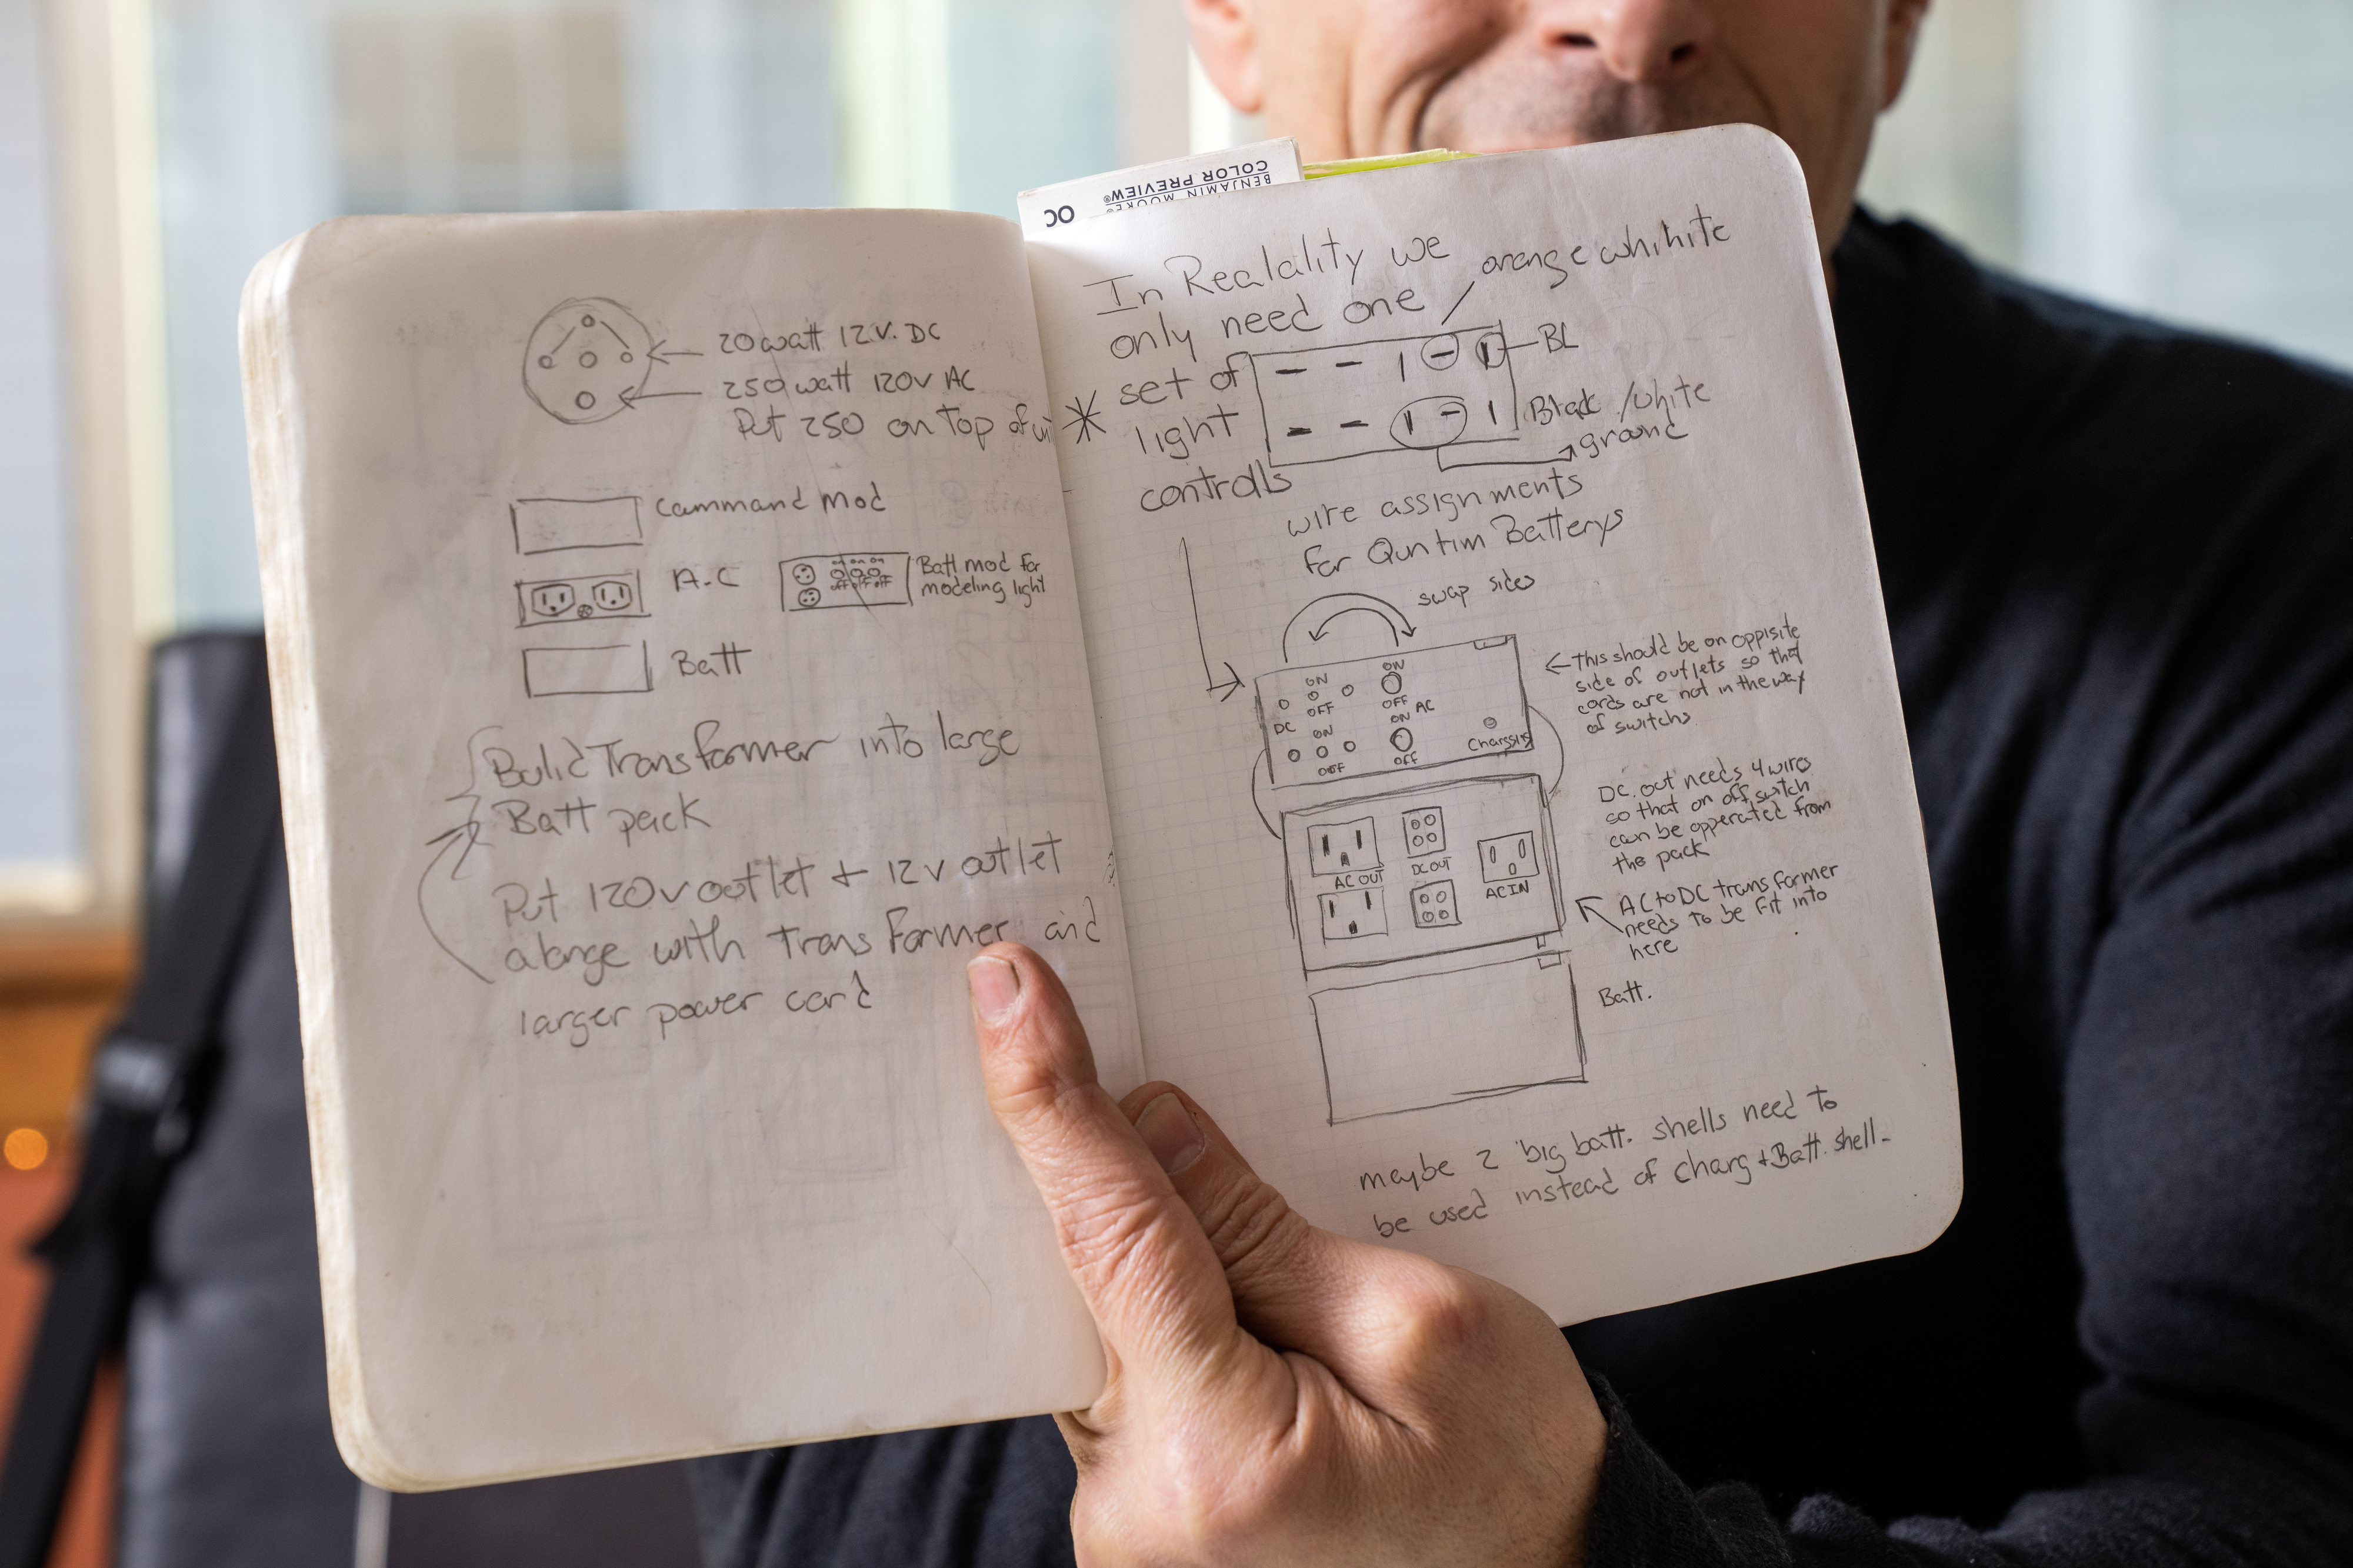 BENJAMIN MOORE®
COLOR PREVIEW®
OC
20 watt 12 V. DC
250 watt 120V AC
Put 250 on top of
Cammand Mod
A.C
on on on
off off off
Batt mod for
modeling light
Batt
Bulid Transformer into large
Batt pack
Put 120v outlet + 12v outlet
alonge with transformer and
larger power cord
In Realality we
only need one
set of
light
controlls
orange whihite
BL
Black /white
ground
wire assignments
for Quntim Batterys
swap sides
ON
OFF
DC
ON
OFF
ON
OFF
AC
ON
OFF
Charssis
This should be on oppisite
side of outlets so that
cords are not in the way
of switchs.
AC OUT
DC OUT
AC IN
DC. out needs 4 wires
so that on off switch
can be opperated from
the pack
AC to DC transformer
needs to be fit into
here
Batt.
maybe 2 big batt. shells need to
be used instead of charg + Batt. shell-